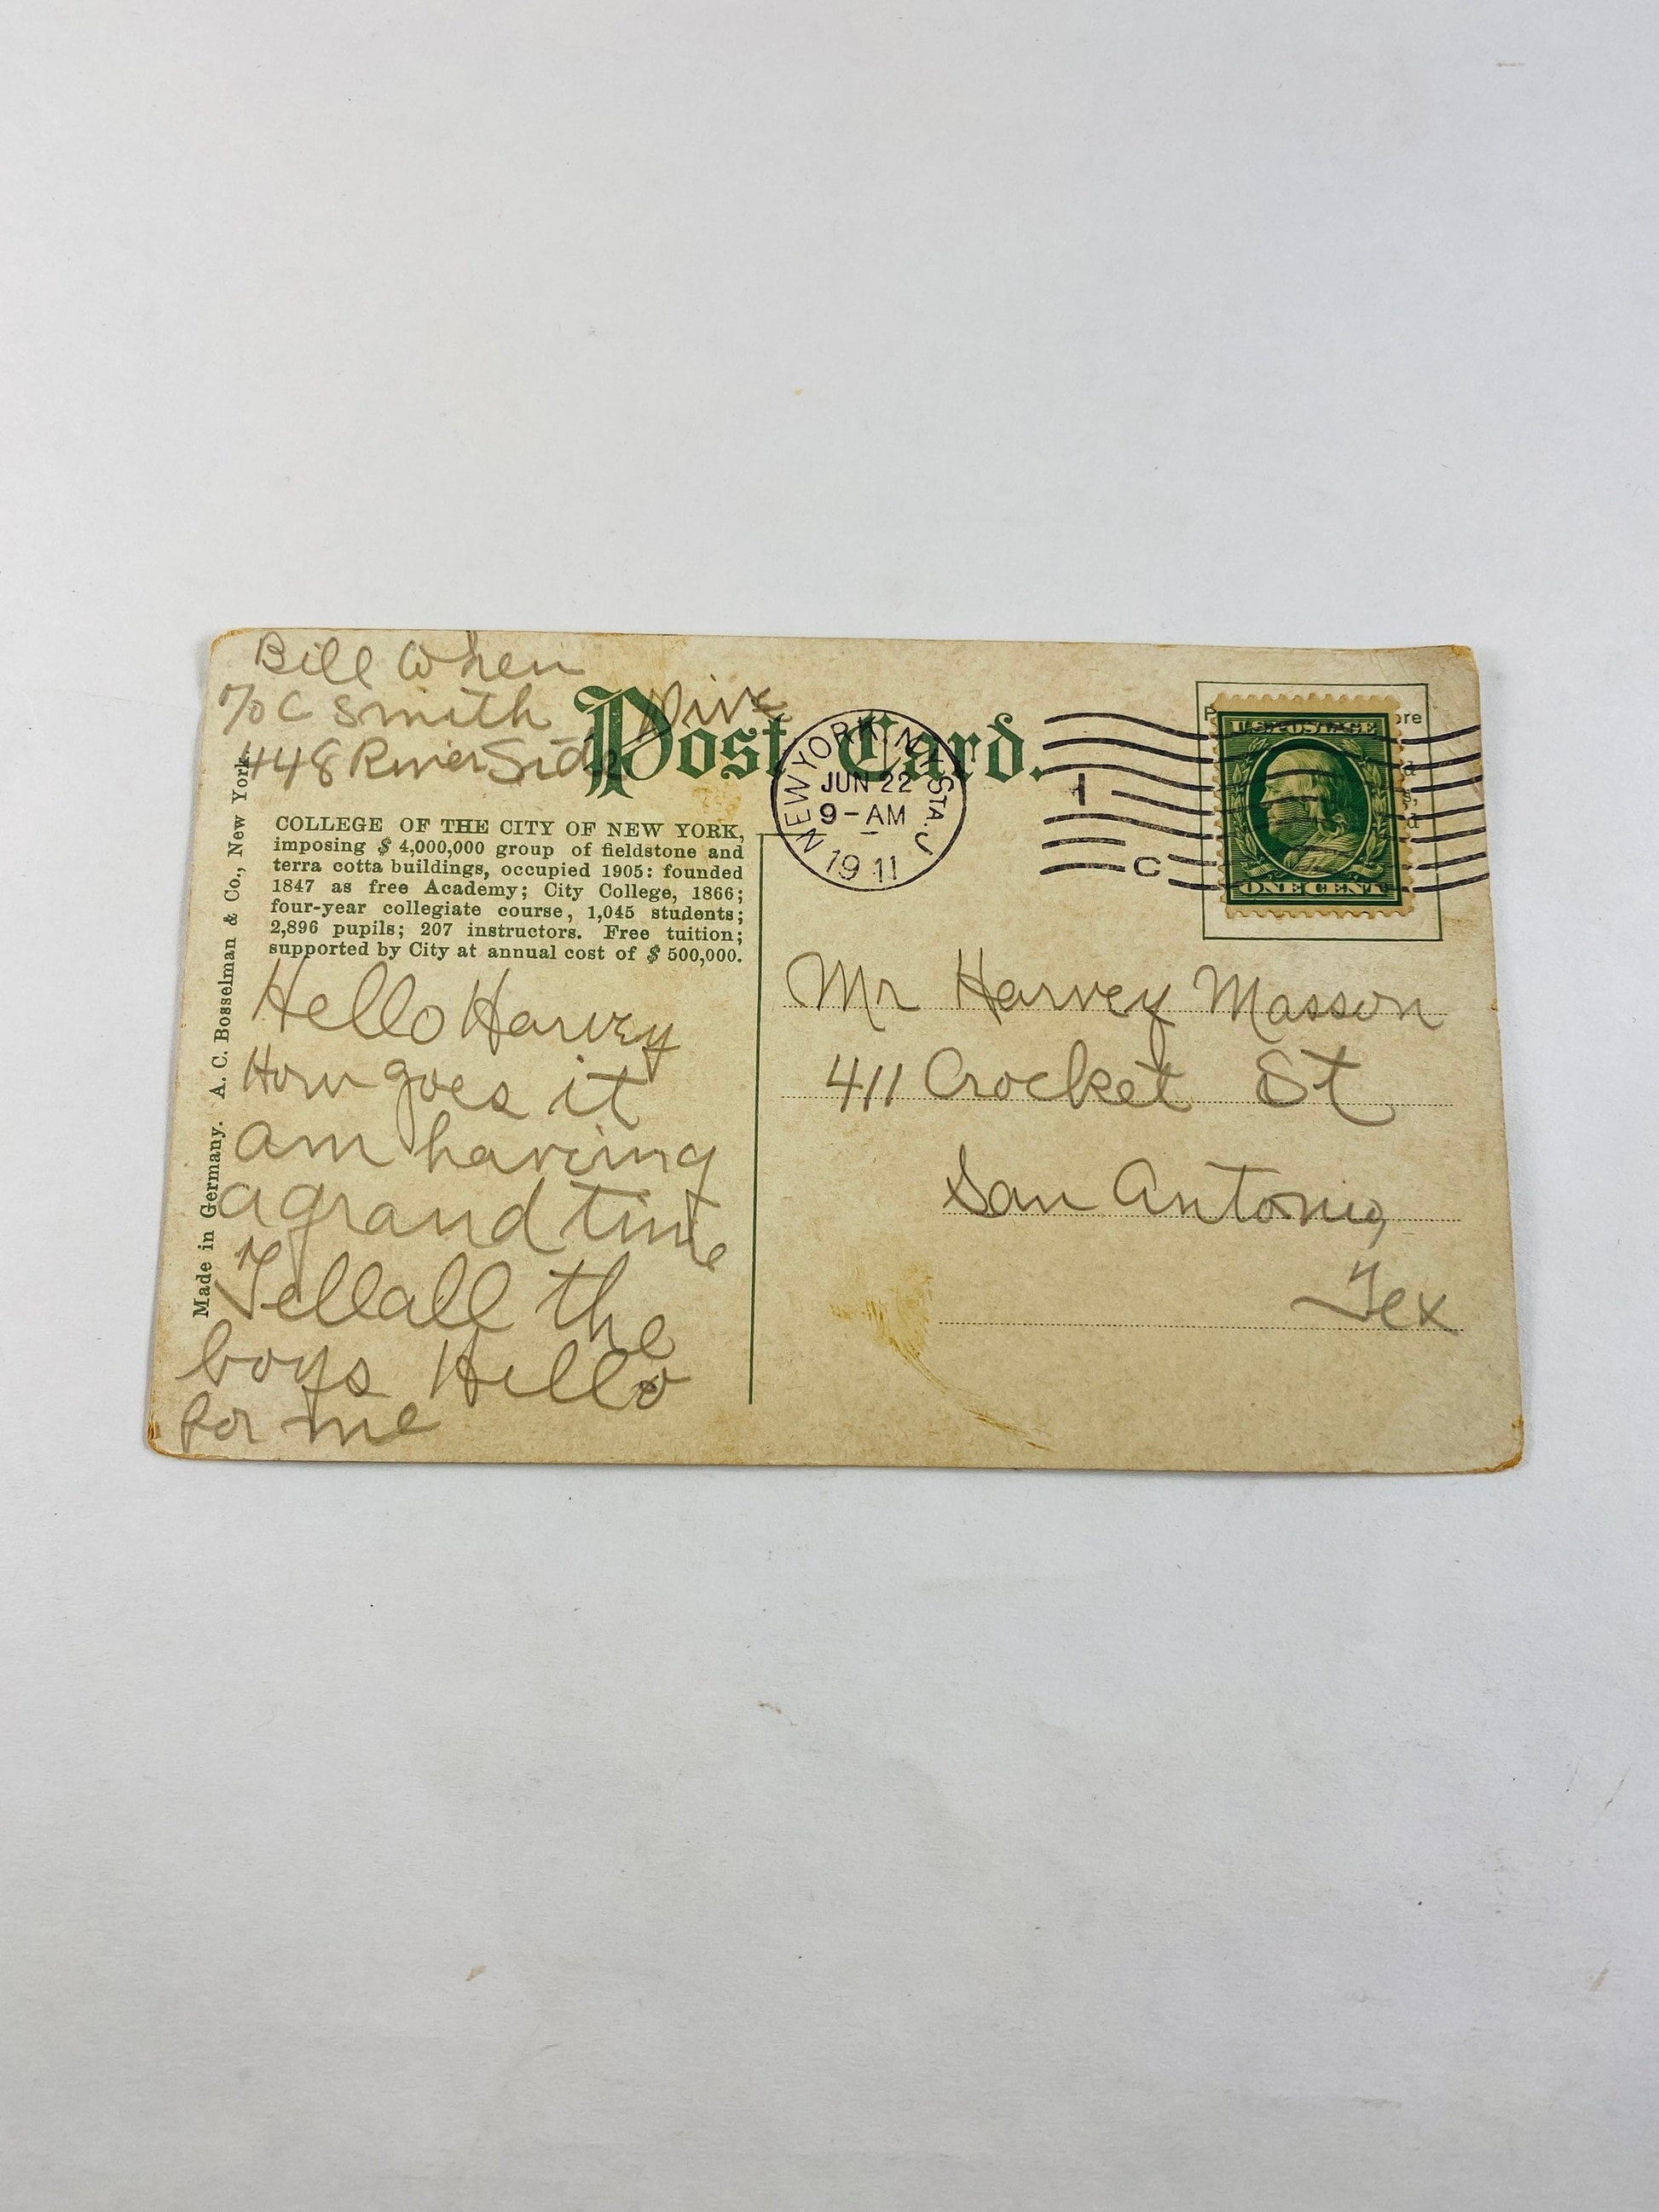 Bill When
c/o C Smith
448 River Side Drive
Post Card.
NEW YORK, N.Y. STA. J
JUN 22
9-AM
1911
1
C
U.S. POSTAGE
ONE CENT
COLLEGE OF THE CITY OF NEW YORK,
imposing $ 4,000,000 group of fieldstone and
terra cotta buildings, occupied 1905: founded
1847 as free Academy; City College, 1866;
four-year collegiate course, 1,045 students;
2,896 pupils; 207 instructors. Free tuition;
supported by City at annual cost of $ 500,000.
Hello Harvey
How goes it
am having
a grand time
Tell all the
boys Hello
for me
Made in Germany. A. C. Bosselman & Co., New York.
Mr Harvey Masson
411 Crocket St
San Antonio,
Tex